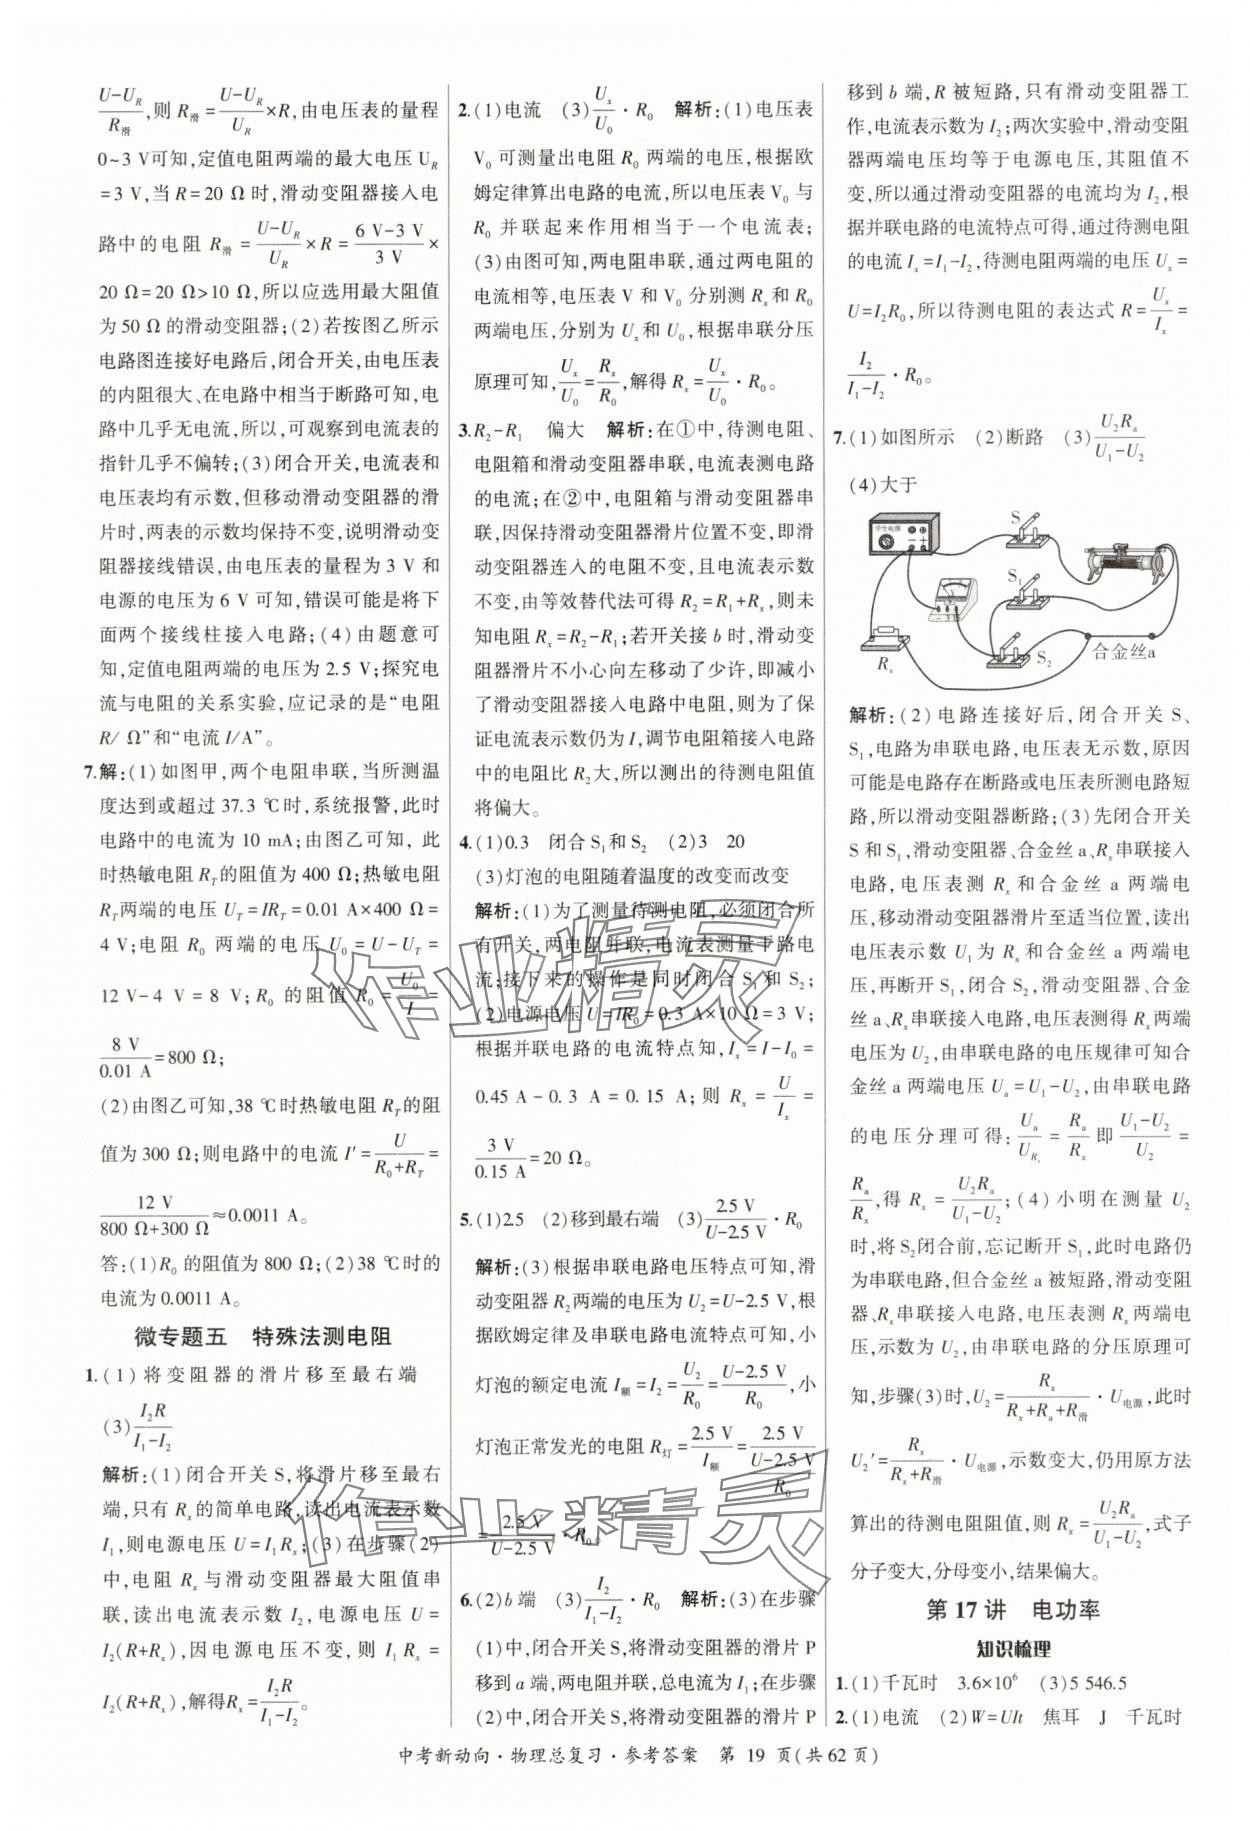 (U-U_R)/R滑,则 R滑=(U-U_R)/U_R×R,由电压表的量程
0~3 V可知,定值电阻两端的最大电压 U_R
=3 V,当 R=20 Ω 时,滑动变阻器接入电
路中的电阻 R滑=(U-U_R)/U_R×R=(6 V-3 V)/3 V×
20 Ω=20 Ω>10 Ω,所以应选用最大阻值
为 50 Ω 的滑动变阻器;(2)若按图乙所示
电路图连接好电路后,闭合开关,由电压表
的内阻很大、在电路中相当于断路可知,电
路中几乎无电流,所以,可观察到电流表的
指针几乎不偏转;(3)闭合开关,电流表和
电压表均有示数,但移动滑动变阻器的滑
片时,两表的示数均保持不变,说明滑动变
阻器接线错误,由电压表的量程为 3 V 和
电源的电压为 6 V 可知,错误可能是将下
面两个接线柱接入电路;(4)由题意可
知,定值电阻两端的电压为 2.5 V;探究电
流与电阻的关系实验,应记录的是“电阻
R/ Ω”和“电流 I/A”。
7.解:(1)如图甲,两个电阻串联,当所测温
度达到或超过 37.3 ℃时,系统报警,此时
电路中的电流为 10 mA;由图乙可知, 此
时热敏电阻 R_T的阻值为 400 Ω;热敏电阻
R_T两端的电压 U_T=IR_T=0.01 A×400 Ω=
4 V;电阻 R₀ 两端的电压 U₀=U-U_T=
12 V-4 V=8 V;R₀ 的阻值 R₀=U₀/I=
8 V/0.01 A=800 Ω;
(2)由图乙可知,38 ℃时热敏电阻 R_T的阻
值为 300 Ω;则电路中的电流 I′=U/(R₀+R_T)=
12 V/(800 Ω+300 Ω)≈0.0011 A。
答:(1)R₀ 的阻值为 800 Ω;(2)38 ℃时的
电流为 0.0011 A。
微专题五 特殊法测电阻
1.(1)将变阻器的滑片移至最右端
(3)I₂R/(I₁-I₂)
解析:(1)闭合开关 S,将滑片移至最右
端,只有 Rₓ的简单电路,读出电流表示数
I₁,则电源电压 U=I₁Rₓ;(3)在步骤(2)
中,电阻 Rₓ 与滑动变阻器最大阻值串
联,读出电流表示数 I₂,电源电压 U=
I₂(R+Rₓ),因电源电压不变,则 I₁Rₓ=
I₂(R+Rₓ),解得Rₓ=I₂R/(I₁-I₂)。
2.(1)电流 (3)Uₓ/U₀·R₀ 解析:(1)电压表
V₀ 可测量出电阻 R₀ 两端的电压,根据欧
姆定律算出电路的电流,所以电压表 V₀ 与
R₀ 并联起来作用相当于一个电流表;
(3)由图可知,两电阻串联,通过两电阻的
电流相等,电压表 V 和 V₀ 分别测 Rₓ和 R₀
两端电压,分别为 Uₓ和 U₀,根据串联分压
原理可知,Uₓ/U₀=Rₓ/R₀,解得 Rₓ=Uₓ/U₀·R₀。
3.R₂-R₁ 偏大 解析:在①中,待测电阻、
电阻箱和滑动变阻器串联,电流表测电路
的电流;在②中,电阻箱与滑动变阻器串
联,因保持滑动变阻器滑片位置不变,即滑
动变阻器连入的电阻不变,且电流表示数
不变,由等效替代法可得 R₂=R₁+Rₓ,则未
知电阻 Rₓ=R₂-R₁;若开关接 b 时,滑动变
阻器滑片不小心向左移动了少许,即减小
了滑动变阻器接入电路中电阻,则为了保
证电流表示数仍为 I,调节电阻箱接入电路
中的电阻比 R₂大,所以测出的待测电阻值
将偏大。
4.(1)0.3 闭合 S₁和 S₂ (2)3 20
(3)灯泡的电阻随着温度的改变而改变
解析:(1)为了测量待测电阻,必须闭合所
有开关,两电阻并联,电流表测量干路电
流;接下来的操作是同时闭合 S₁和 S₂;
(2)电源电压 U=IR₀=0.3 A×10 Ω=3 V;
根据并联电路的电流特点知,Iₓ=I-I₀=
0.45 A-0.3 A=0.15 A;则 Rₓ=U/Iₓ=
3 V/0.15 A=20 Ω。
5.(1)2.5 (2)移到最右端 (3)2.5 V/(U-2.5 V)·R₀
解析:(3)根据串联电路电压特点可知,滑
动变阻器 R₂两端的电压为 U₂=U-2.5 V,根
据欧姆定律及串联电路电流特点可知,小
灯泡的额定电流 I额=I₂=U₂/R₀=(U-2.5 V)/R₀,小
灯泡正常发光的电阻 R灯=2.5 V/I额=2.5 V/((U-2.5 V)/R₀)
=2.5 V/(U-2.5 V)·R₀。
6.(2)b 端 (3)I₂/(I₁-I₂)·R₀ 解析:(3)在步骤
(1)中,闭合开关 S,将滑动变阻器的滑片 P
移到 a 端,两电阻并联,总电流为 I₁;在步骤
(2)中,闭合开关 S,将滑动变阻器的滑片 P
移到 b 端,R 被短路,只有滑动变阻器工
作,电流表示数为 I₂;两次实验中,滑动变阻
器两端电压均等于电源电压,其阻值不
变,所以通过滑动变阻器的电流均为 I₂,根
据并联电路的电流特点可得,通过待测电阻
的电流 Iₓ=I₁-I₂,待测电阻两端的电压 Uₓ=
U=I₂R₀,所以待测电阻的表达式 R=Uₓ/Iₓ=
I₂/(I₁-I₂)·R₀。
7.(1)如图所示 (2)断路 (3)U₂Rₐ/(U₁-U₂)
(4)大于
学生电源
S
S₁
S₂
Rₓ
合金丝a
解析:(2)电路连接好后,闭合开关 S、
S₁,电路为串联电路,电压表无示数,原因
可能是电路存在断路或电压表所测电路短
路,所以滑动变阻器断路;(3)先闭合开关
S 和 S₁,滑动变阻器、合金丝 a、Rₓ串联接入
电路,电压表测 Rₓ和合金丝 a 两端电
压,移动滑动变阻器滑片至适当位置,读出
电压表示数 U₁为 Rₓ和合金丝 a 两端电
压,再断开 S₁,闭合 S₂,滑动变阻器、合金
丝 a、Rₓ串联接入电路,电压表测得 Rₓ两端
电压为 U₂,由串联电路的电压规律可知合
金丝 a 两端电压 Uₐ=U₁-U₂,由串联电路
的电压分理可得:Uₐ/U_Rₓ=Rₐ/Rₓ即(U₁-U₂)/U₂=
Rₐ/Rₓ,得 Rₓ=U₂Rₐ/(U₁-U₂);(4)小明在测量 U₂
时,将 S₂闭合前,忘记断开 S₁,此时电路仍
为串联电路,但合金丝 a 被短路,滑动变阻
器、Rₓ串联接入电路,电压表测 Rₓ两端电
压,示数为 U₂,由串联电路的分压原理可
知,步骤(3)时,U₂=Rₓ/(Rₓ+Rₐ+R滑)·U电源,此时
U₂′=Rₓ/(Rₓ+R滑)·U电源,示数变大,仍用原方法
算出的待测电阻阻值,则 Rₓ=U₂Rₐ/(U₁-U₂),式子
分子变大,分母变小,结果偏大。
第 17 讲 电功率
知识梳理
1.(1)千瓦时 3.6×10⁶ (3)5 546.5
2.(1)电流 (2)W=UIt 焦耳 J 千瓦时
中考新动向·物理总复习·参考答案 第 19 页(共 62 页)
作业精灵
作业精灵